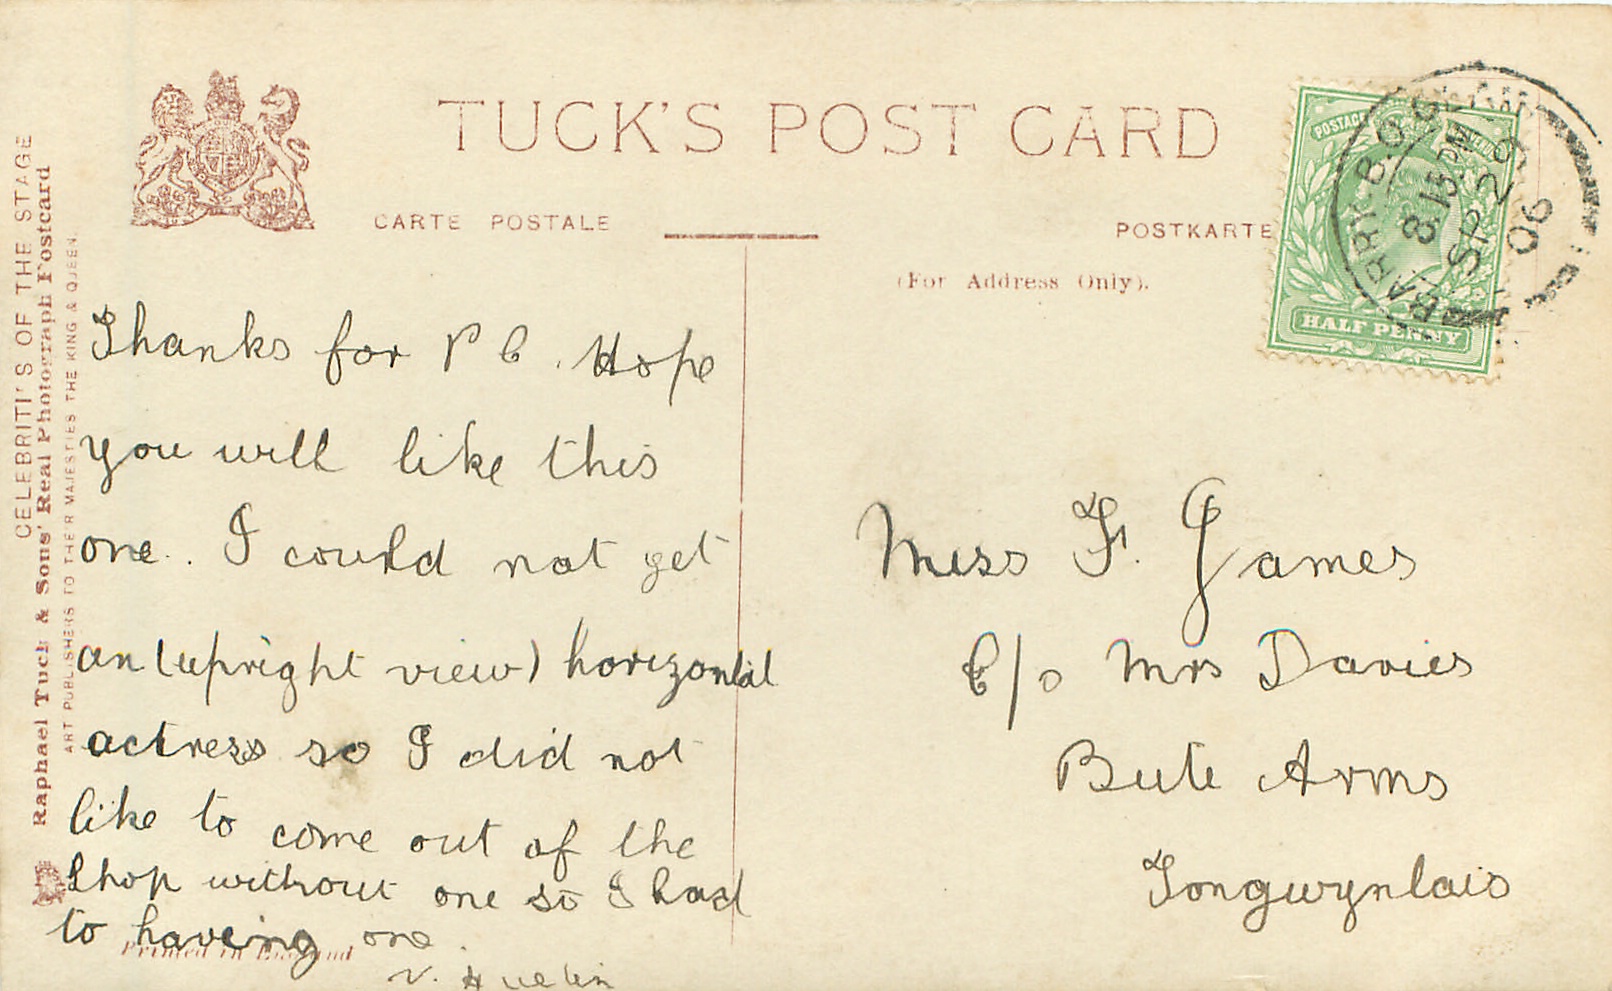 TUCK'S POST CARD
CARTE POSTALE
POSTKARTE
(For Address Only).
CELEBRITI'S OF THE STAGE
Raphael Tuck & Sons' Real Photograph Postcard
ART PUBLISHERS TO THEIR MAJESTIES THE KING & QUEEN.
Thanks for P C. Hope
you will like this
one. I could not get
an (upright view) horizontal
actress so I did not
like to come out of the
shop without one so I had
to haveing one.
V.
Printed in England
POSTAGE REVENUE
HALF PENNY
BARRY B.O.
8.15 PM
SP 29
06
Miss F. James
C/o Mrs Davies
Bute Arms
Tongwynlais